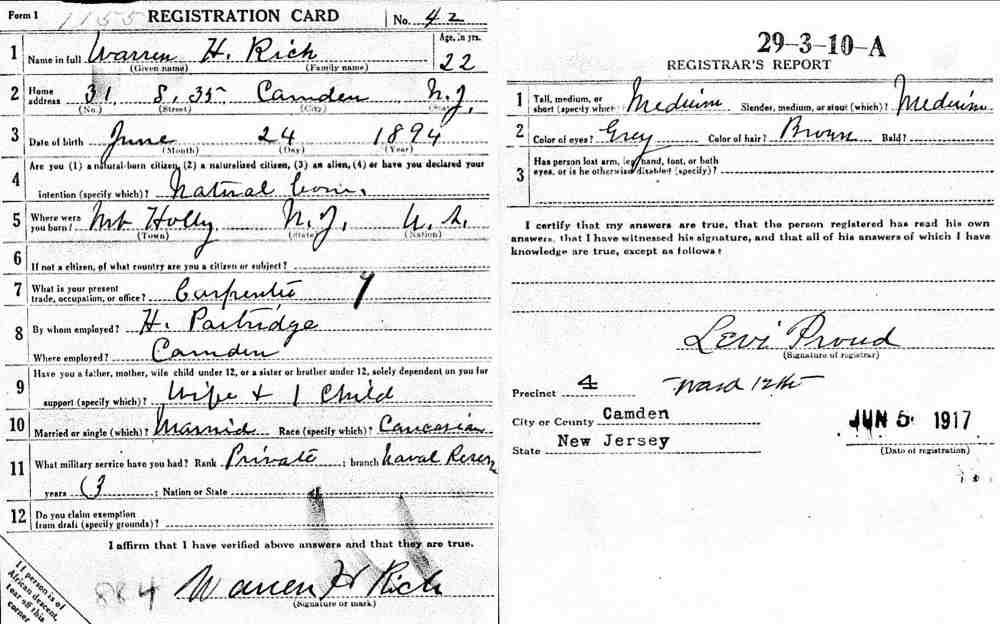 Form 1 1155 REGISTRATION CARD No. 42
1 Name in full Warren H. Rich Age, in yrs. 22
(Given name) (Family name)
2 Home address 31 S. 35 Camden N.J.
(No.) (Street) (City) (State)
3 Date of birth June 24 1894
(Month) (Day) (Year)
4 Are you (1) a natural-born citizen, (2) a naturalized citizen, (3) an alien, (4) or have you declared your
intention (specify which)? Natural born.
5 Where were you born? Mt Holly N.J. U.S.
(Town) (State) (Nation)
6 If not a citizen, of what country are you a citizen or subject?
7 What is your present trade, occupation, or office? Carpenter
8 By whom employed? H. Partridge
Where employed? Camden
9 Have you a father, mother, wife, child under 12, or a sister or brother under 12, solely dependent on you for
support (specify which)? Wife + 1 Child
10 Married or single (which)? Married Race (specify which)? Caucasian
11 What military service have you had? Rank Private ; branch Naval Reserv
years 3 ; Nation or State
12 Do you claim exemption from draft (specify grounds)?
I affirm that I have verified above answers and that they are true.
884 Warren H Rich
(Signature or mark)
If person is of
African descent,
tear off this
corner
29-3-10-A
REGISTRAR'S REPORT
1 Tall, medium, or short (specify which)? Medium Slender, medium, or stout (which)? Medium
2 Color of eyes? Grey Color of hair? Brown Bald?
3 Has person lost arm, leg, hand, foot, or both
eyes, or is he otherwise disabled (specify)?
I certify that my answers are true, that the person registered has read his own
answers, that I have witnessed his signature, and that all of his answers of which I have
knowledge are true, except as follows:
Levi Proud
(Signature of registrar)
Precinct 4 Ward 12th
City or County Camden
State New Jersey
JUN 5 1917
(Date of registration)